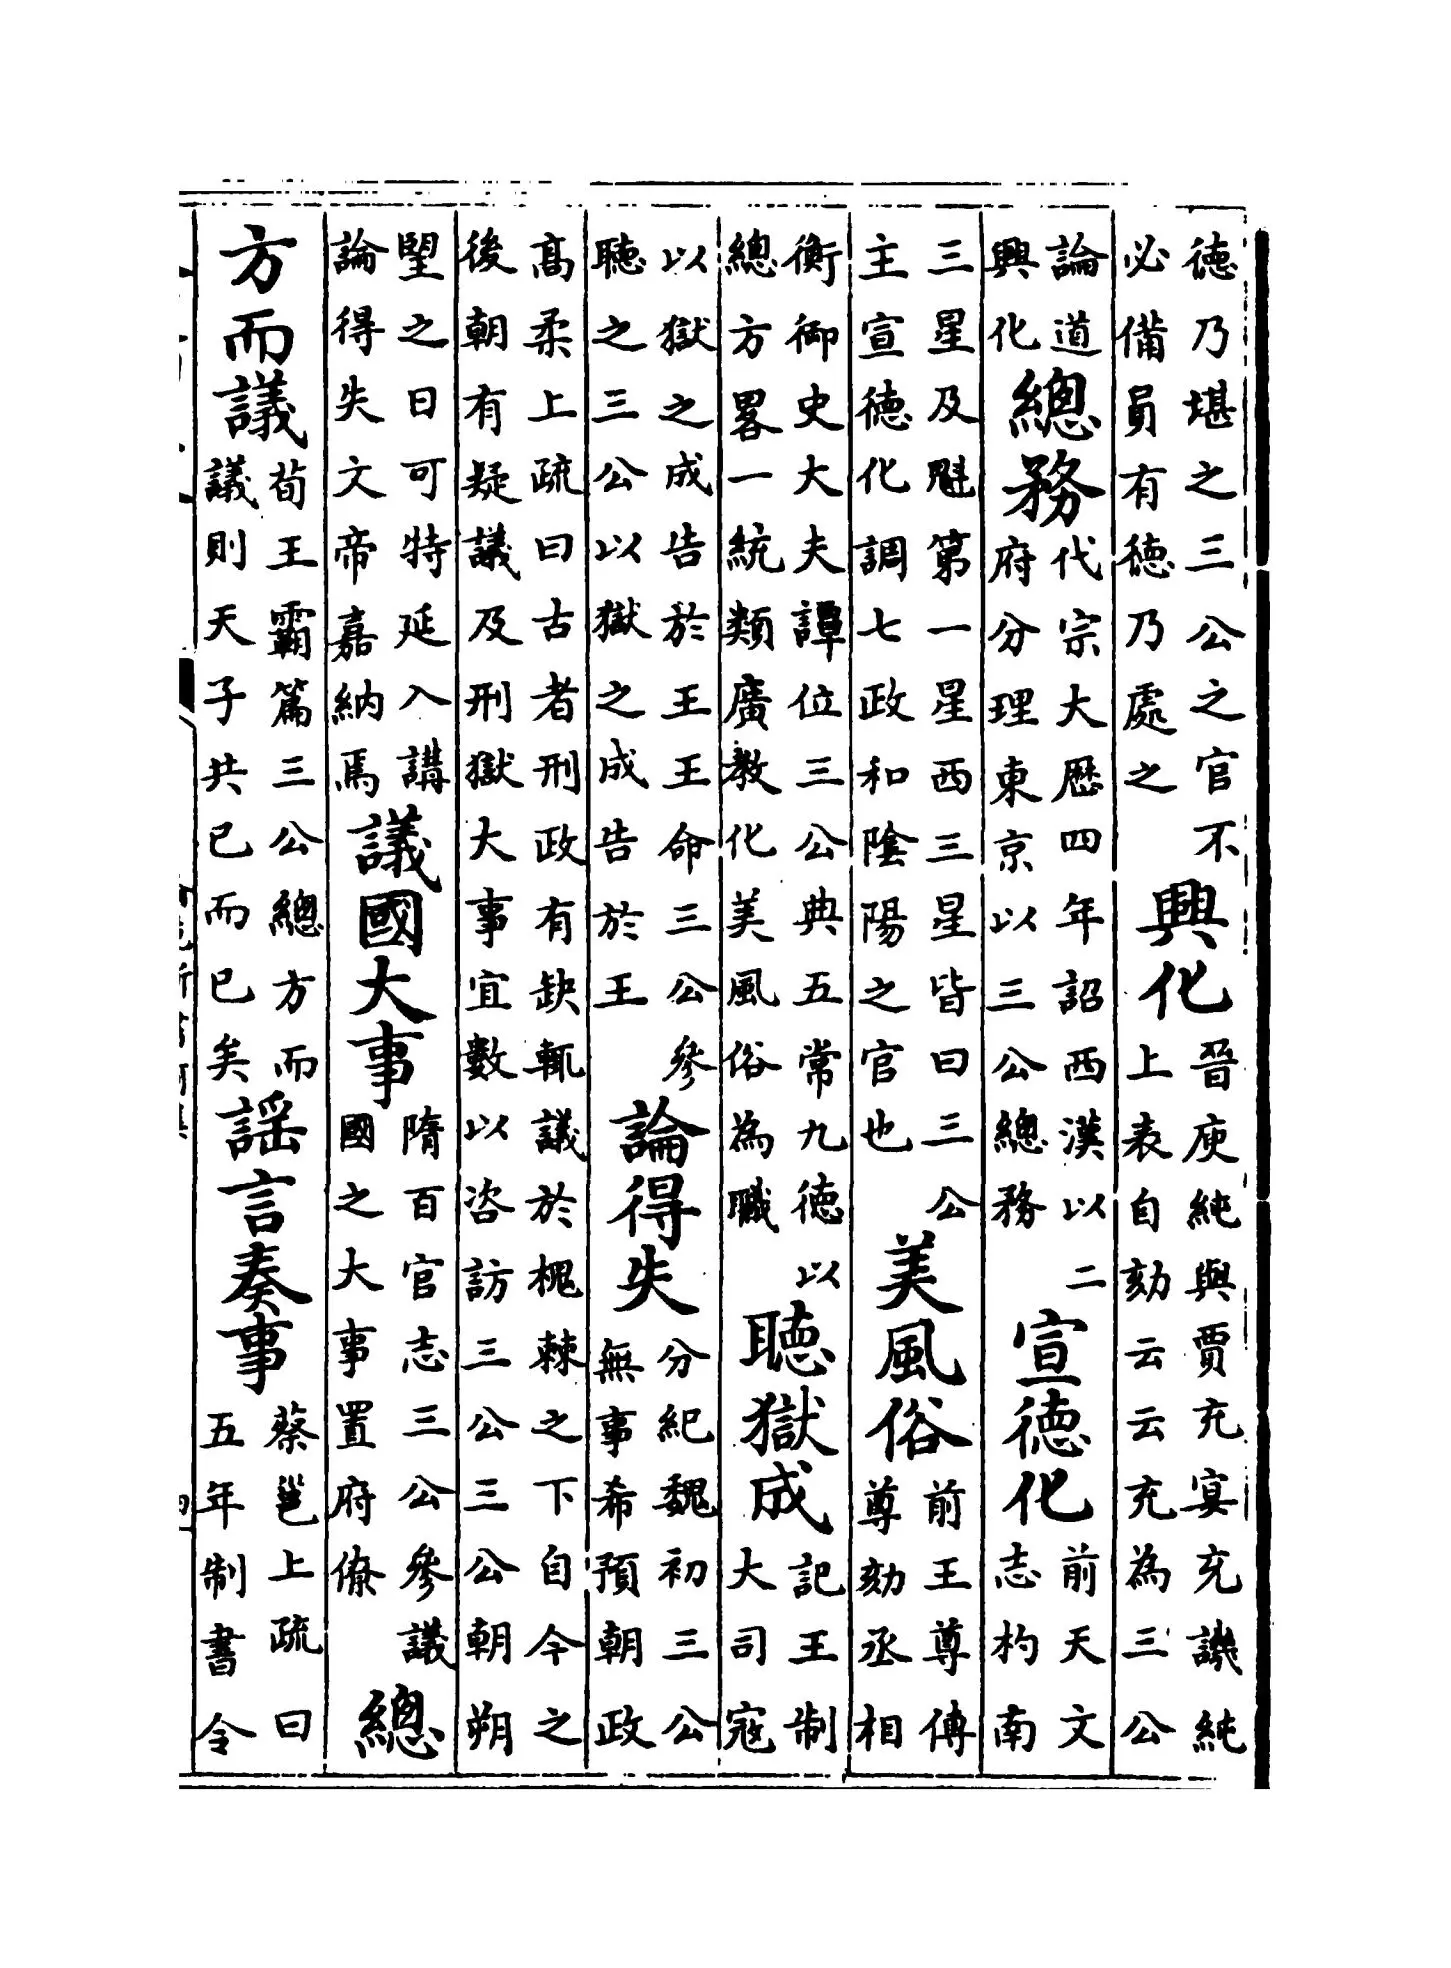 德乃堪之三公之官不
必備員有德乃處之
興化
晉庾純與賈充宴充譏純
上表自劾云云充為三公
論道
興化
總務
代宗大歷四年詔西漢以二
府分理東京以三公總務
宣德化
前天文
志杓南
三星及魁第一星西三星皆曰三公
主宣德化調七政和陰陽之官也
美風俗
前王尊傳
尊劾丞相
衡御史大夫譚位三公典五常九德以
總方畧一統類廣教化美風俗為職
聽獄成
記王制
大司寇
以獄之成告於王王命三公參
聽之三公以獄之成告於王
論得失
分紀魏初三公
無事希預朝政
髙柔上疏曰古者刑政有缺輒議於槐棘之下自今之
後朝有疑議及刑獄大事宜數以咨訪三公三公朝朔
朢之日可特延入講
論得失文帝嘉納焉
議國大事
隋百官志三公參議
國之大事置府僚
總
方而議
荀王霸篇三公總方而
議則天子共已而已矣
謡言奏事
蔡邕上疏曰
五年制書令